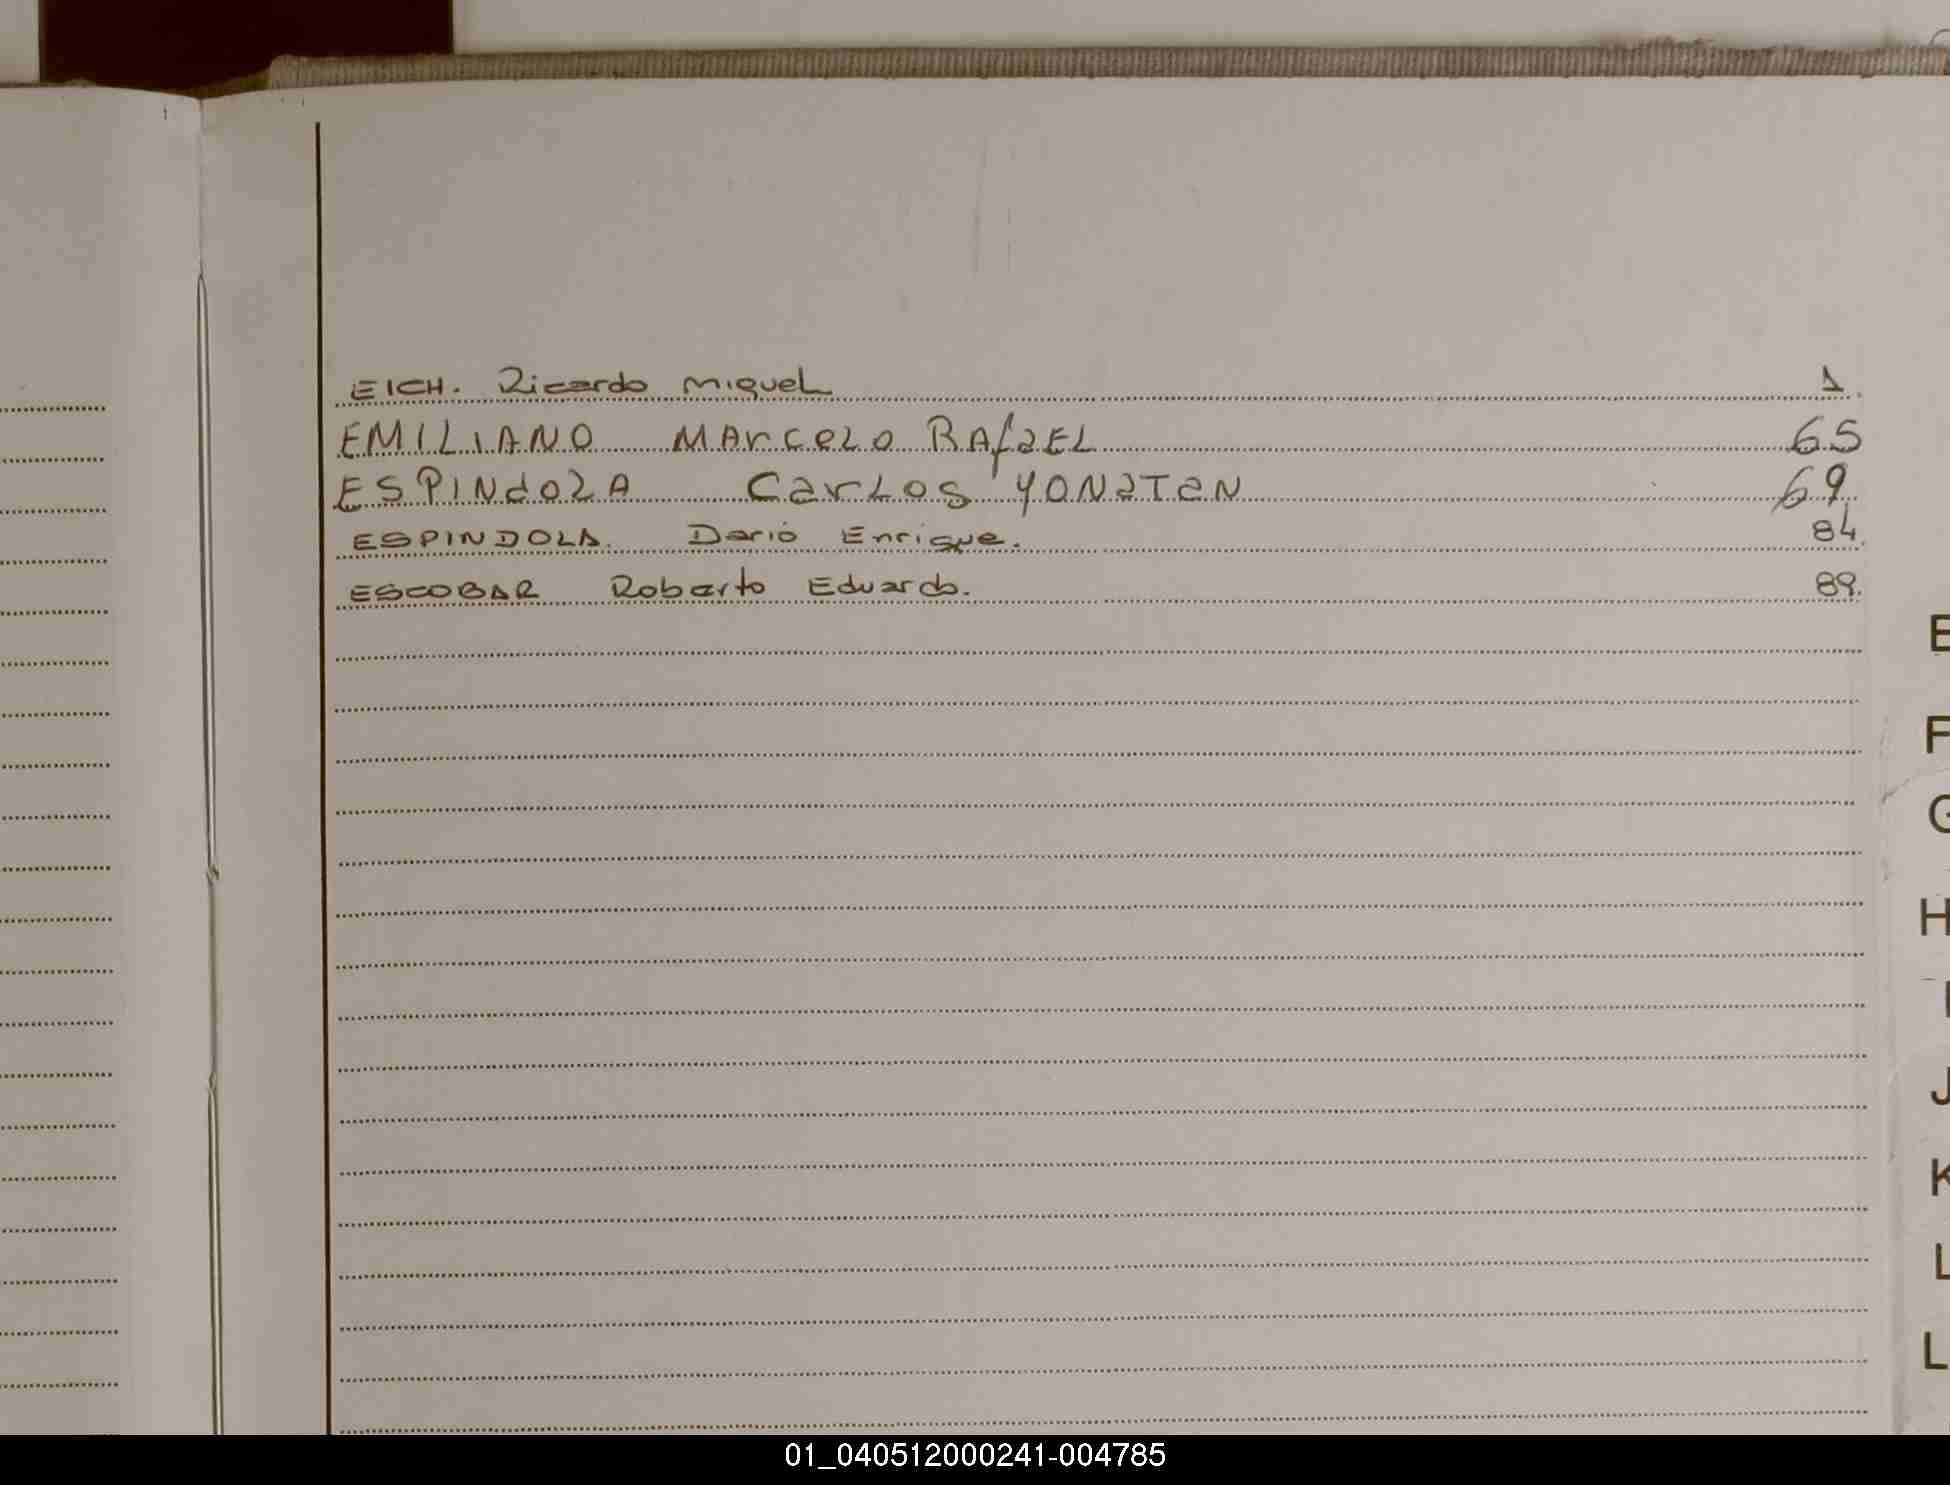 EICH. Ricardo Miguel 1.
EMILIANO Marcelo Rafael 65
ESPINdOLA CarLos YONaTaN 69
ESPINDOLA. Dario Enrique. 84.
ESCOBAR Roberto Eduardo. 89.
E
F
G
H
I
J
K
L
L
01_040512000241-004785